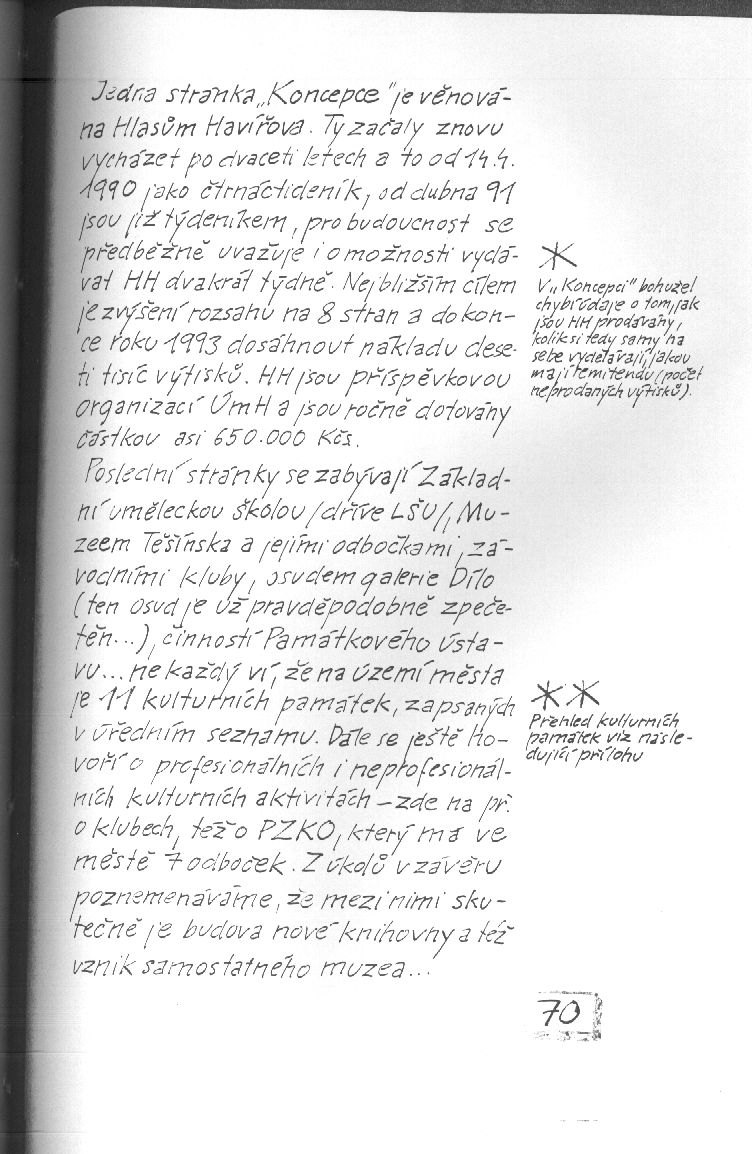 Jedna stránka „Koncepce" je věnová-
na Hlasům Havířova. Ty začaly znovu
vycházet po dvaceti letech a to od 14.4.
1990 jako čtrnáctideník, od dubna 91
jsou již týdeníkem, pro budoucnost se
předběžně uvažuje i o možnosti vydá-
vat HH dvakrát týdně. Nejbližším cílem
je zvýšení rozsahu na 8 stran a do kon-
ce roku 1993 dosáhnout nákladu dese-
ti tisíc výtisků. HH jsou příspěvkovou
organizací ÚmH a jsou ročně dotovány
částkou asi 650.000 Kčs.
Poslední stránky se zabývají Základ-
ní uměleckou školou /dříve LŠU/, Mu-
zeem Těšínska a jejími odbočkami, zá-
vodními kluby, osudem galerie Dílo
(ten osud je už pravděpodobně zpeče-
těn...), činností Památkového ústa-
vu... ne každý ví, že na území města
je 11 kulturních památek, zapsaných
v úředním seznamu. Dále se ještě ho-
voří o profesionálních i neprofesionál-
ních kulturních aktivitách - zde na př.
o klubech, též o PZKO, který má ve
městě 7 odboček. Z úkolů v závěru
poznemenáváme, že mezi nimi sku-
tečně je budova nové knihovny a též
vznik samostatného muzea...
*
V „Koncepci" bohužel
chybí údaje o tom, jak
jsou HH prodávány,
kolik si tedy samy na
sebe vydělávají, jakou
mají remitendu (počet
neprodaných výtisků).
**
Přehled kulturních
památek viz násle-
dující přílohu
70